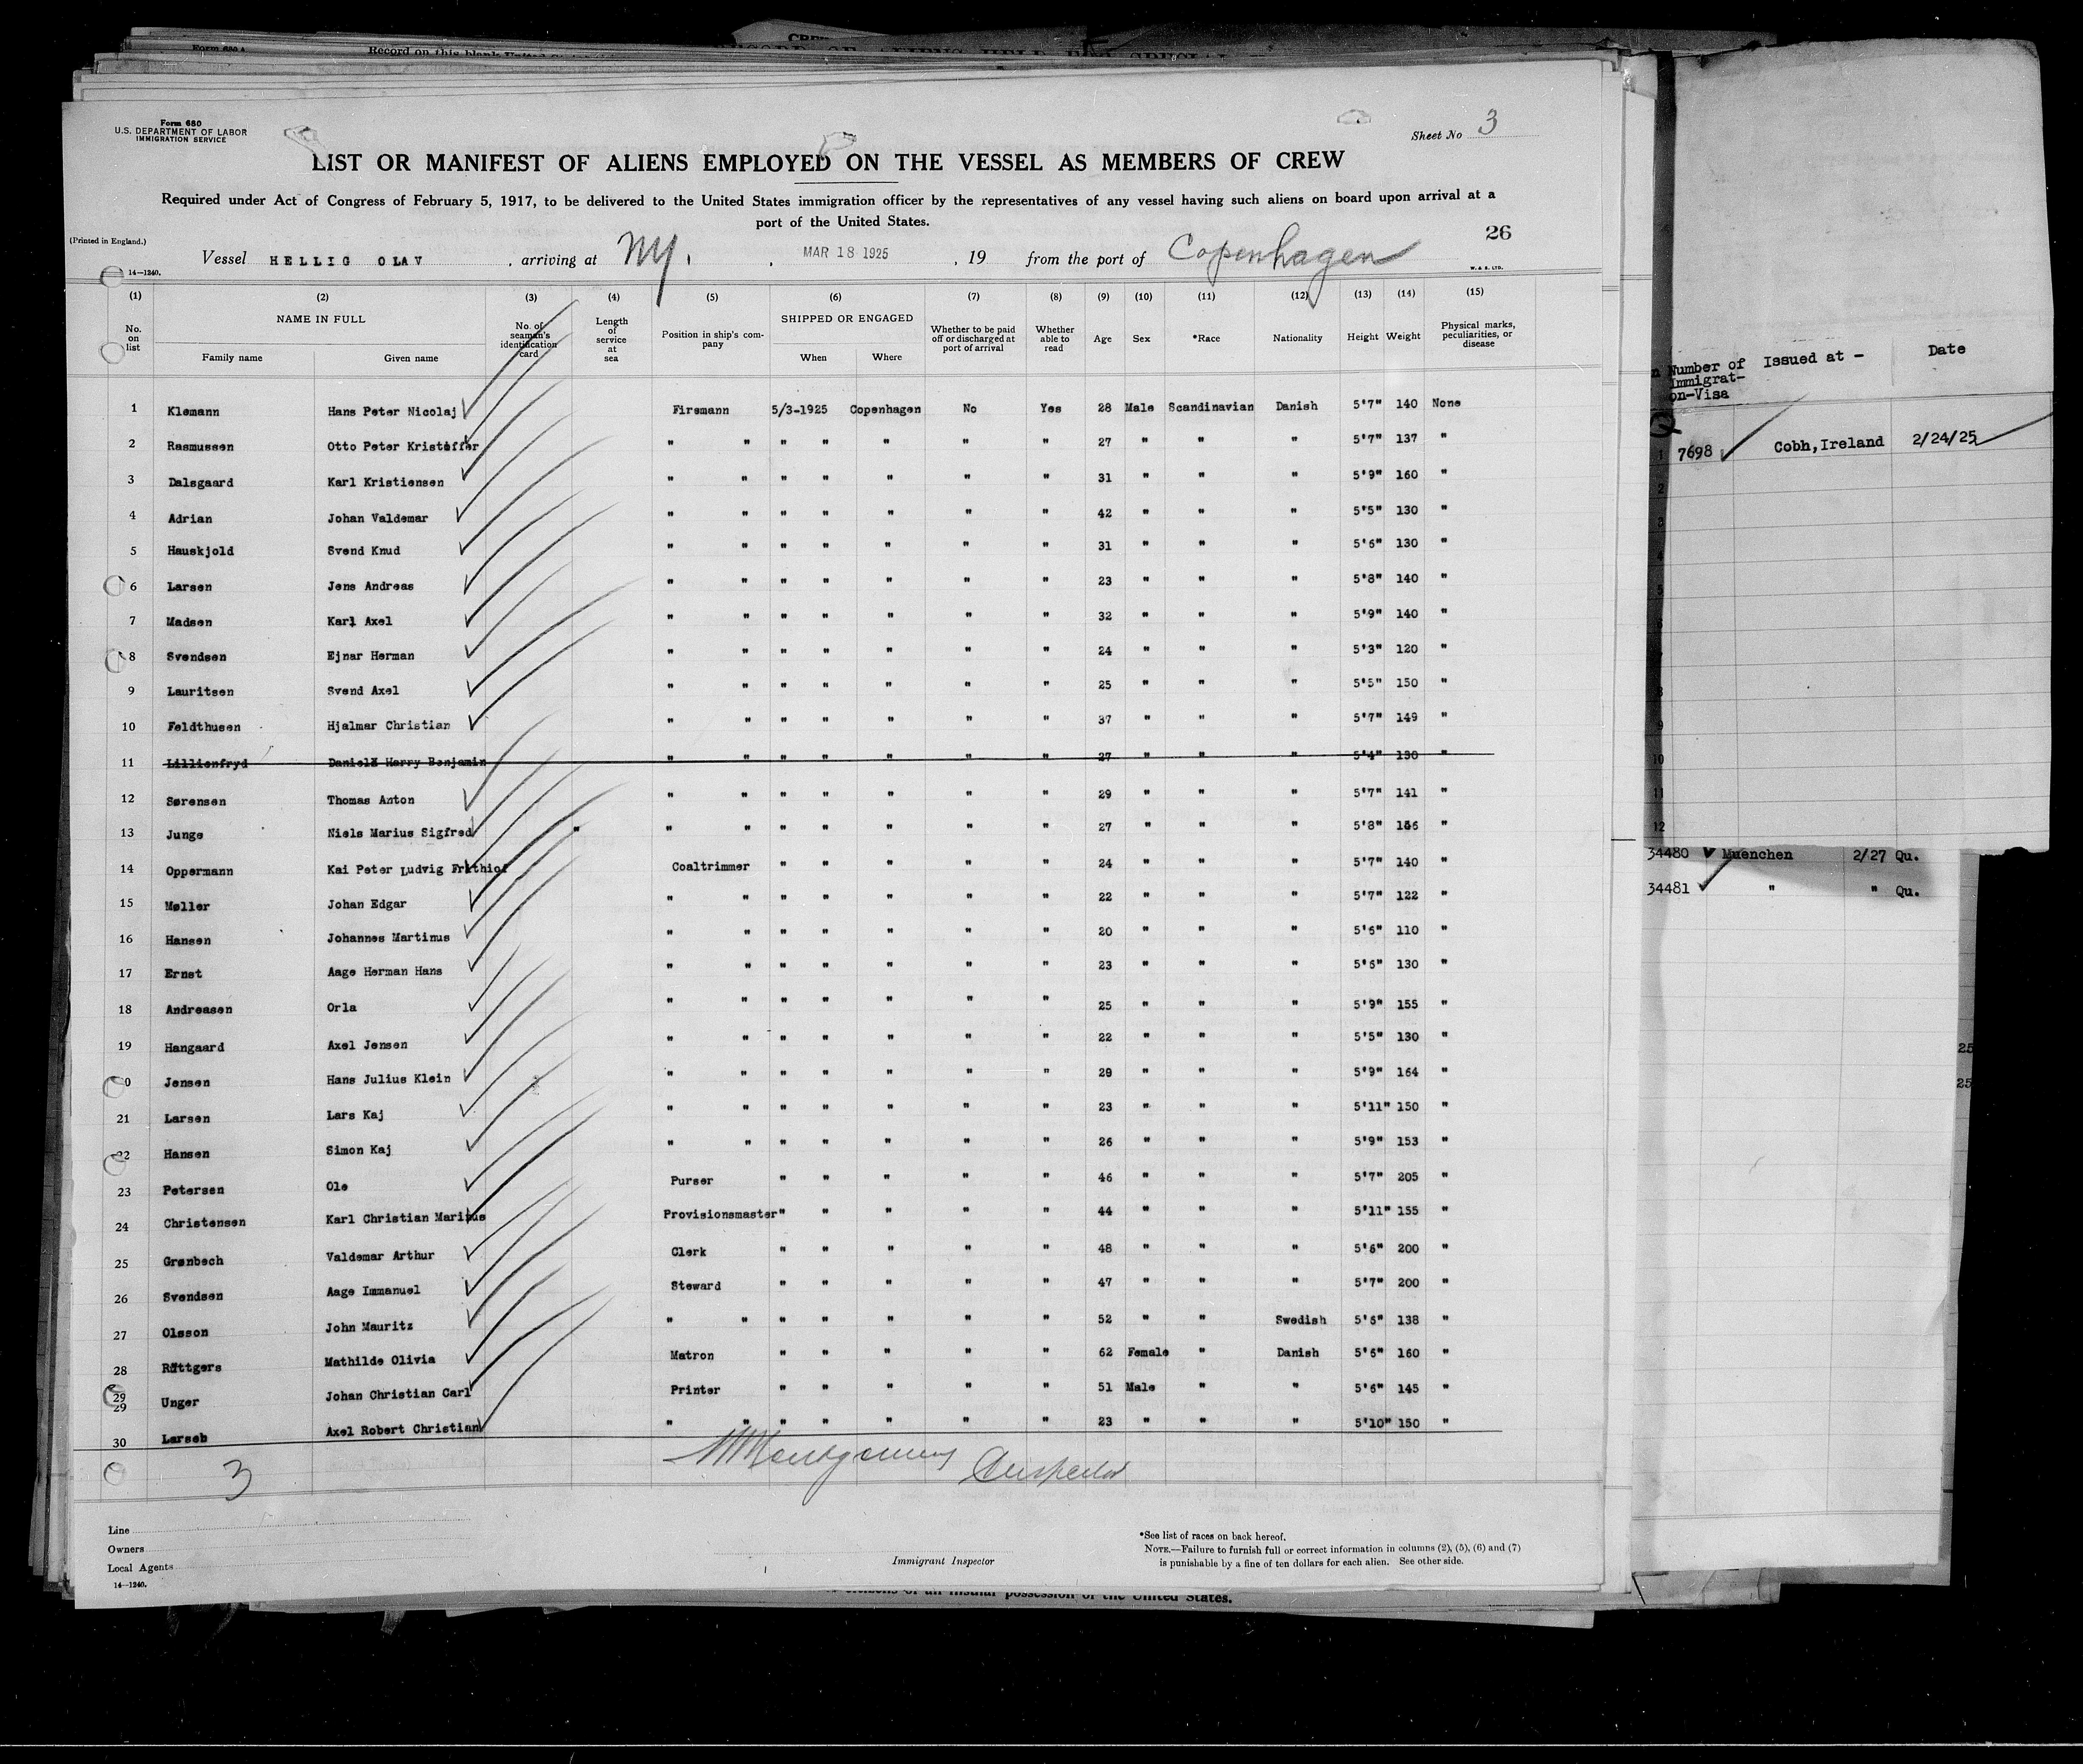 Form 680 A
Record on this blank United
Form 680
U.S. DEPARTMENT OF LABOR
IMMIGRATION SERVICE
Sheet No 3
LIST OR MANIFEST OF ALIENS EMPLOYED ON THE VESSEL AS MEMBERS OF CREW
Required under Act of Congress of February 5, 1917, to be delivered to the United States immigration officer by the representatives of any vessel having such aliens on board upon arrival at a
port of the United States.
26
(Printed in England.)
Vessel HELLIG OLAV , arriving at NY. , MAR 18 1925 , 19 from the port of Copenhagen
14—1240.
W. & S. LTD.
(1) (2) (3) (4) (5) (6) (7) (8) (9) (10) (11) (12) (13) (14) (15)
No. on list NAME IN FULL Family name Given name No. of seaman's identification card Length of service at sea Position in ship's company SHIPPED OR ENGAGED When Where Whether to be paid off or discharged at port of arrival Whether able to read Age Sex *Race Nationality Height Weight Physical marks, peculiarities, or disease
1 Klemann Hans Peter Nicolaj Firemann 5/3-1925 Copenhagen No Yes 28 Male Scandinavian Danish 5'7" 140 None
2 Rasmussen Otto Peter Kristoffer " " " " " " " 27 " " " 5'7" 137 "
3 Dalsgaard Karl Kristiensen " " " " " " " 31 " " " 5'9" 160 "
4 Adrian Johan Valdemar " " " " " " " 42 " " " 5'5" 130 "
5 Hauskjold Svend Knud " " " " " " " 31 " " " 5'6" 130 "
6 Larsen Jens Andreas " " " " " " " 23 " " " 5'8" 140 "
7 Madsen Karl Axel " " " " " " " 32 " " " 5'9" 140 "
8 Svendsen Ejnar Herman " " " " " " " 24 " " " 5'3" 120 "
9 Lauritsen Svend Axel " " " " " " " 25 " " " 5'5" 150 "
10 Feldthusen Hjalmar Christian " " " " " " " 37 " " " 5'7" 149 "
11 Lillienfryd Daniel Harry Benjamin " " " " " " " 27 " " " 5'4" 130 "
12 Sørensen Thomas Anton " " " " " " " 29 " " " 5'7" 141 "
13 Junge Niels Marius Sigfred " " " " " " " " 27 " " " 5'8" 156 "
14 Oppermann Kai Peter Ludvig Frithiof Coaltrimmer " " " " " 24 " " " 5'7" 140 "
15 Møller Johan Edgar " " " " " " " 22 " " " 5'7" 122 "
16 Hansen Johannes Martinus " " " " " " " 20 " " " 5'6" 110 "
17 Ernst Aage Herman Hans " " " " " " " 23 " " " 5'6" 130 "
18 Andreasen Orla " " " " " " " 25 " " " 5'9" 155 "
19 Hangaard Axel Jensen " " " " " " " 22 " " " 5'5" 130 "
0 Jensen Hans Julius Klein " " " " " " " 29 " " " 5'9" 164 "
21 Larsen Lars Kaj " " " " " " " 23 " " " 5'11" 150 "
22 Hansen Simon Kaj " " " " " " " 26 " " " 5'9" 153 "
23 Petersen Ole Purser " " " " " 46 " " " 5'7" 205 "
24 Christensen Karl Christian Marinus Provisionsmaster " " " " " 44 " " " 5'11" 155 "
25 Grønbech Valdemar Arthur Clerk " " " " " 48 " " " 5'6" 200 "
26 Svendsen Aage Immanuel Steward " " " " " 47 " " " 5'7" 200 "
27 Olsson John Mauritz " " " " " " " 52 " " Swedish 5'6" 138 "
28 Röttgers Mathilde Olivia Matron " " " " " 62 Female " Danish 5'6" 160 "
29 29 Unger Johan Christian Carl Printer " " " " " 51 Male " " 5'6" 145 "
30 Larseb Axel Robert Christian " " " " " " " 23 " " " 5'10" 150 "
3 Montgomery Inspector
Line
Owners
Local Agents
14—1240.
Immigrant Inspector
*See list of races on back hereof.
NOTE.—Failure to furnish full or correct information in columns (2), (5), (6) and (7)
is punishable by a fine of ten dollars for each alien. See other side.
of an insular possession of the United States.
Number of Immigrat-on-Visa Issued at - Date
7698 Cobh,Ireland 2/24/25
2
3
4
5
6
7
8
9
10
11
12
34480 Muenchen 2/27 Qu.
34481 " " Qu.
25
25